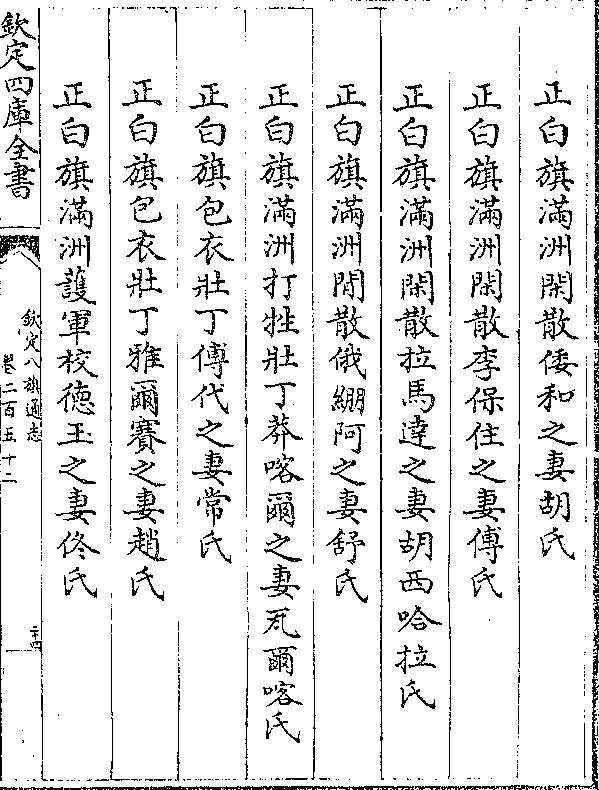 正白旗滿洲閑散倭和之妻胡氏
正白旗滿洲閑散李保住之妻傅氏
正白旗滿洲閑散拉馬達之妻胡西哈拉氏
正白旗滿洲閒散俄綳阿之妻舒氏
正白旗滿洲打牲壯丁莽喀爾之妻瓦爾喀氏
正白旗包衣壯丁傅代之妻常氏
正白旗包衣壯丁雅爾賽之妻趙氏
正白旗滿洲護軍校德玉之妻佟氏
欽定四庫全書
欽定八旗通志
卷二百五十二
二十四